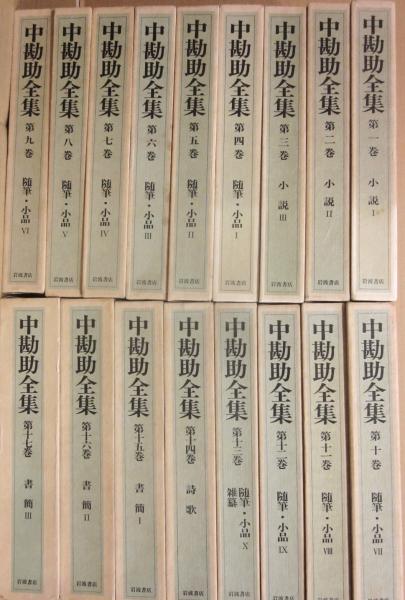 中勘助全集 第一巻 小説 I 岩波書店
中勘助全集 第二巻 小説 II 岩波書店
中勘助全集 第三巻 小説 III 岩波書店
中勘助全集 第四巻 随筆・小品 I 岩波書店
中勘助全集 第五巻 随筆・小品 II 岩波書店
中勘助全集 第六巻 随筆・小品 III 岩波書店
中勘助全集 第七巻 随筆・小品 IV 岩波書店
中勘助全集 第八巻 随筆・小品 V 岩波書店
中勘助全集 第九巻 随筆・小品 VI 岩波書店
中勘助全集 第十巻 随筆・小品 VII 岩波書店
中勘助全集 第十一巻 随筆・小品 VIII 岩波書店
中勘助全集 第十二巻 随筆・小品 IX 岩波書店
中勘助全集 第十三巻 随筆・小品 X 岩波書店
中勘助全集 第十四巻 詩歌 岩波書店
中勘助全集 第十五巻 書簡 I 岩波書店
中勘助全集 第十六巻 書簡 II 岩波書店
中勘助全集 第十七巻 書簡 III 岩波書店